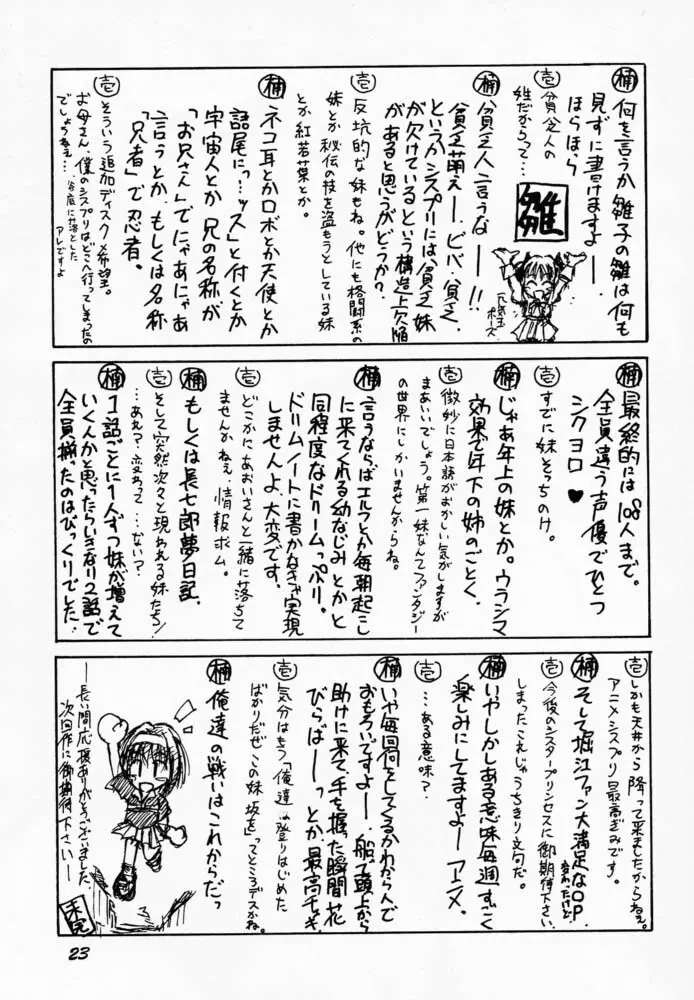 楠 何を言うか 雛子の雛は何も
見ずに書けますよー
ほらほら
壱 貧乏人の
姓だからって…
雛
元気玉
ポーズ
楠 貧乏人言うなーー!!
貧乏萌えー、ビバ・貧乏、
というかシスプリには、貧乏妹
が欠けているという構造上欠陥
があると思うがどうか?
壱 反抗的な妹もね。他にも格闘系の
妹とか秘伝の技を盗もうとしている妹
とか紅若葉とか。
楠 ネコ耳とかロボとか天使とか
語尾に「…ッス」と付くとか
宇宙人とか 兄の名称が
「お兄さん」でにゃあにゃあ
言うとか、もしくは名称
「兄者」で忍者。
壱 そういう追加ディスク〆希望。
お母さん、僕のシスプリはどこへ行ってしまったの
でしょうねえ…
谷底に落とした
アレですよ
楠 最終的には108人まで。
全員違う声優でひとつ
シクヨロ♥
壱 すでに妹そっちのけ。
楠 じゃあ年上の妹とか。ウラシマ
効果で年下の姉のごとく、
壱 微妙に日本語がおかしい気がしますが
まあいいでしょう。第一妹なんてファンタジー
の世界にしかいませんからね。
楠 言うならばエルフとか毎朝起こし
に来てくれる幼なじみとかと
同程度なドリームっぷり。
ドリームノートに書かなきゃ実現
しませんよ、大変です。
壱 どこかに、あおいさんと一緒に落ちて
ませんかねぇ、情報求ム。
楠 もしくは長七郎夢日記、
壱 そして突然次々と現われる妹たち!
…あれ?変わって…ない?
楠 1話ごとに1人ずつ妹が増えて
いくんかと思ったらいきなり2話で
全員揃ったのはびっくりでした!
壱 しかも天井から降って来ましたからねぇ。
アニメシスプリ最高ぎみです。
楠 そして堀江ファン大満足なOP。
変わったけど
壱 今後のシスタープリンセスに御期待下さい、
しまったこれじゃうちきり文句だ。
楠 いやしかしある意味毎週すごく
楽しみにしてますよーアニメ。
壱 …ある意味?
楠 いや毎回何をしてくるかわからんで
おもろいですよー、船頭上から
助けに来て、手を握った瞬間花
びらばーーっとか最高チャキ。
壱 気分はもう「俺達は登りはじめた
ばかりだぜこの妹坂を」ってところデスかね。
楠 俺達の戦いはこれからだっ
―長い間応援ありがとうございました
次回作に御期待下さい―
未完
23